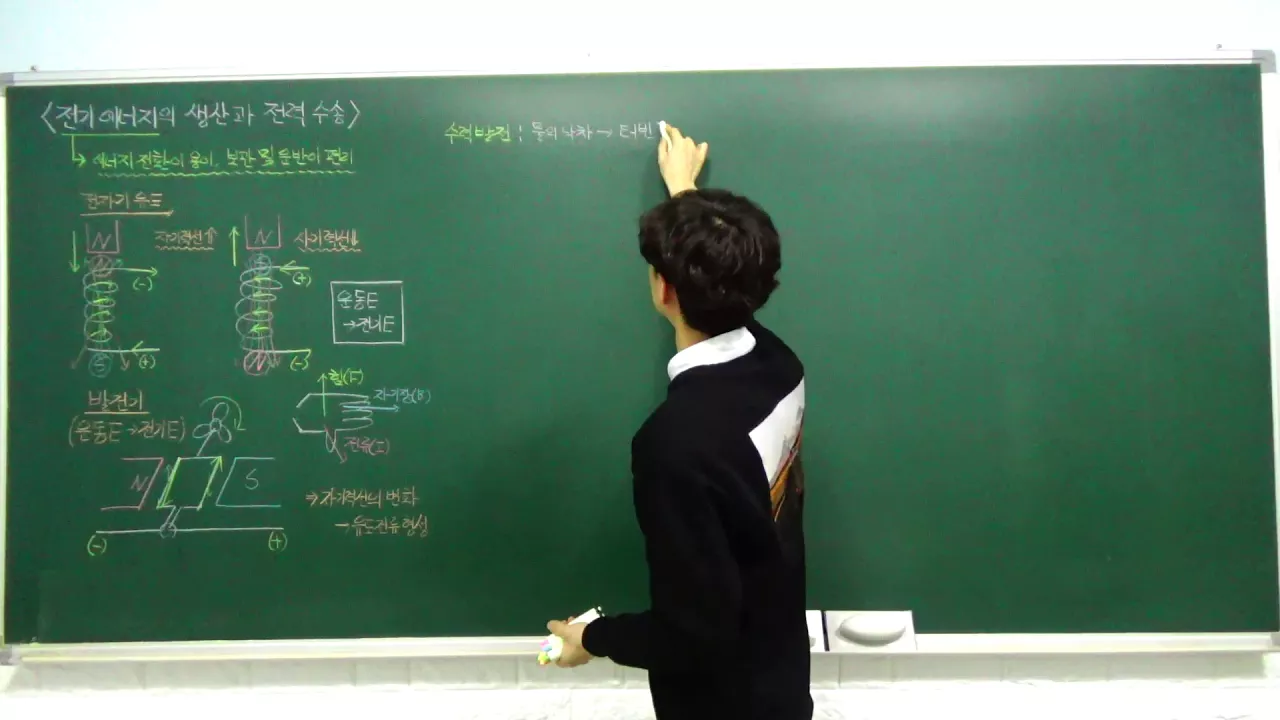 <전기에너지의 생산과 전력 수송>
↳ 에너지 전환이 용이, 보관 및 운반이 편리
전자기 유도
N 자기력선↑ N 자기력선↓
(-) (+)
운동E
→전기E
S (+) N (-)
발전기
(운동E→전기E)
힘(F)
자기장(B)
전류(I)
N S
⇒ 자기력선의 변화
→ 유도전류 형성
(-) (+)
수력발전 : 물의 낙차 → 터빈